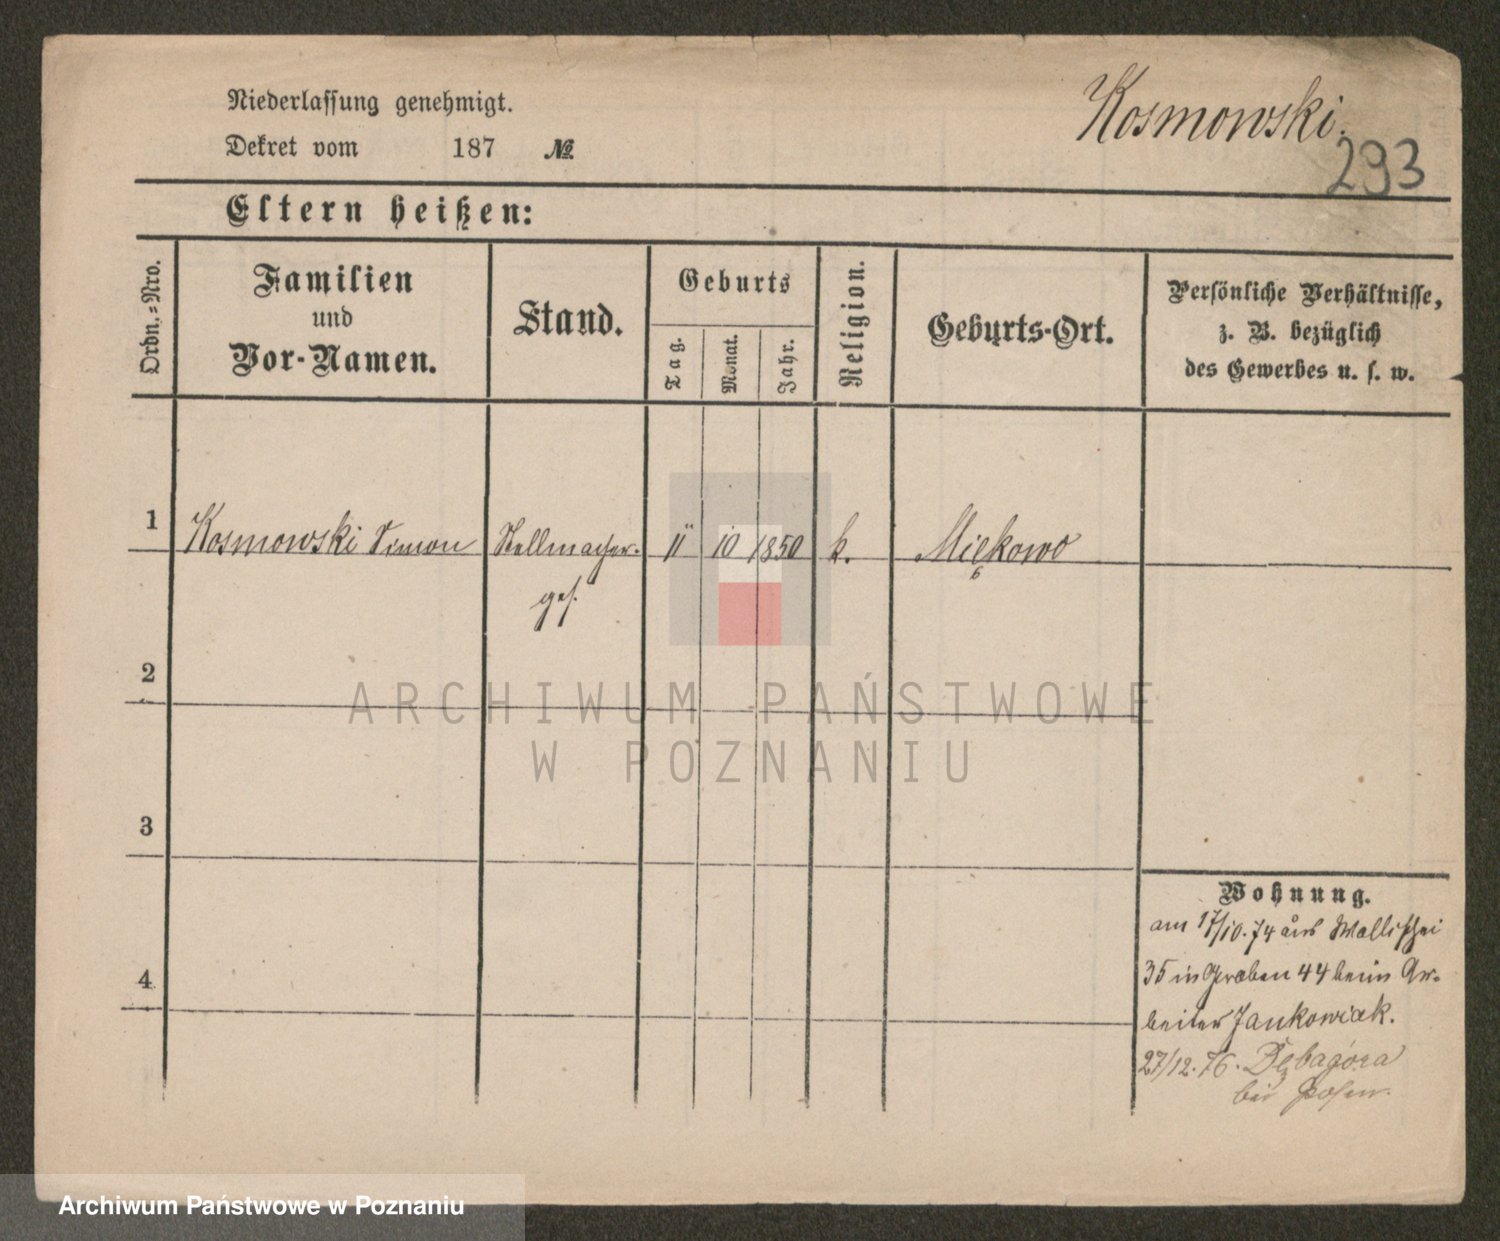 Niederlassung genehmigt.
Dekret vom 187 №
Kosmowski.
293
Eltern heißen:
Ordn.-Nro.
Familien
und
Vor-Namen.
Stand.
Geburts
Tag.
Monat.
Jahr.
Religion.
Geburts-Ort.
Persönliche Verhältnisse,
z. B. bezüglich
des Gewerbes u. s. w.
1 Kosmowski Simon Stellmacher- 11 10 1850 k. Miękowo
ges.
2
3
4
Wohnung.
am 17/10. 74 aus Wallischei
35 in Graben 44 beim Ar-
beiter Jankowiak.
27/12. 76. Dębagóra
bei Posen.
ARCHIWUM PAŃSTWOWE
W POZNANIU
Archiwum Państwowe w Poznaniu